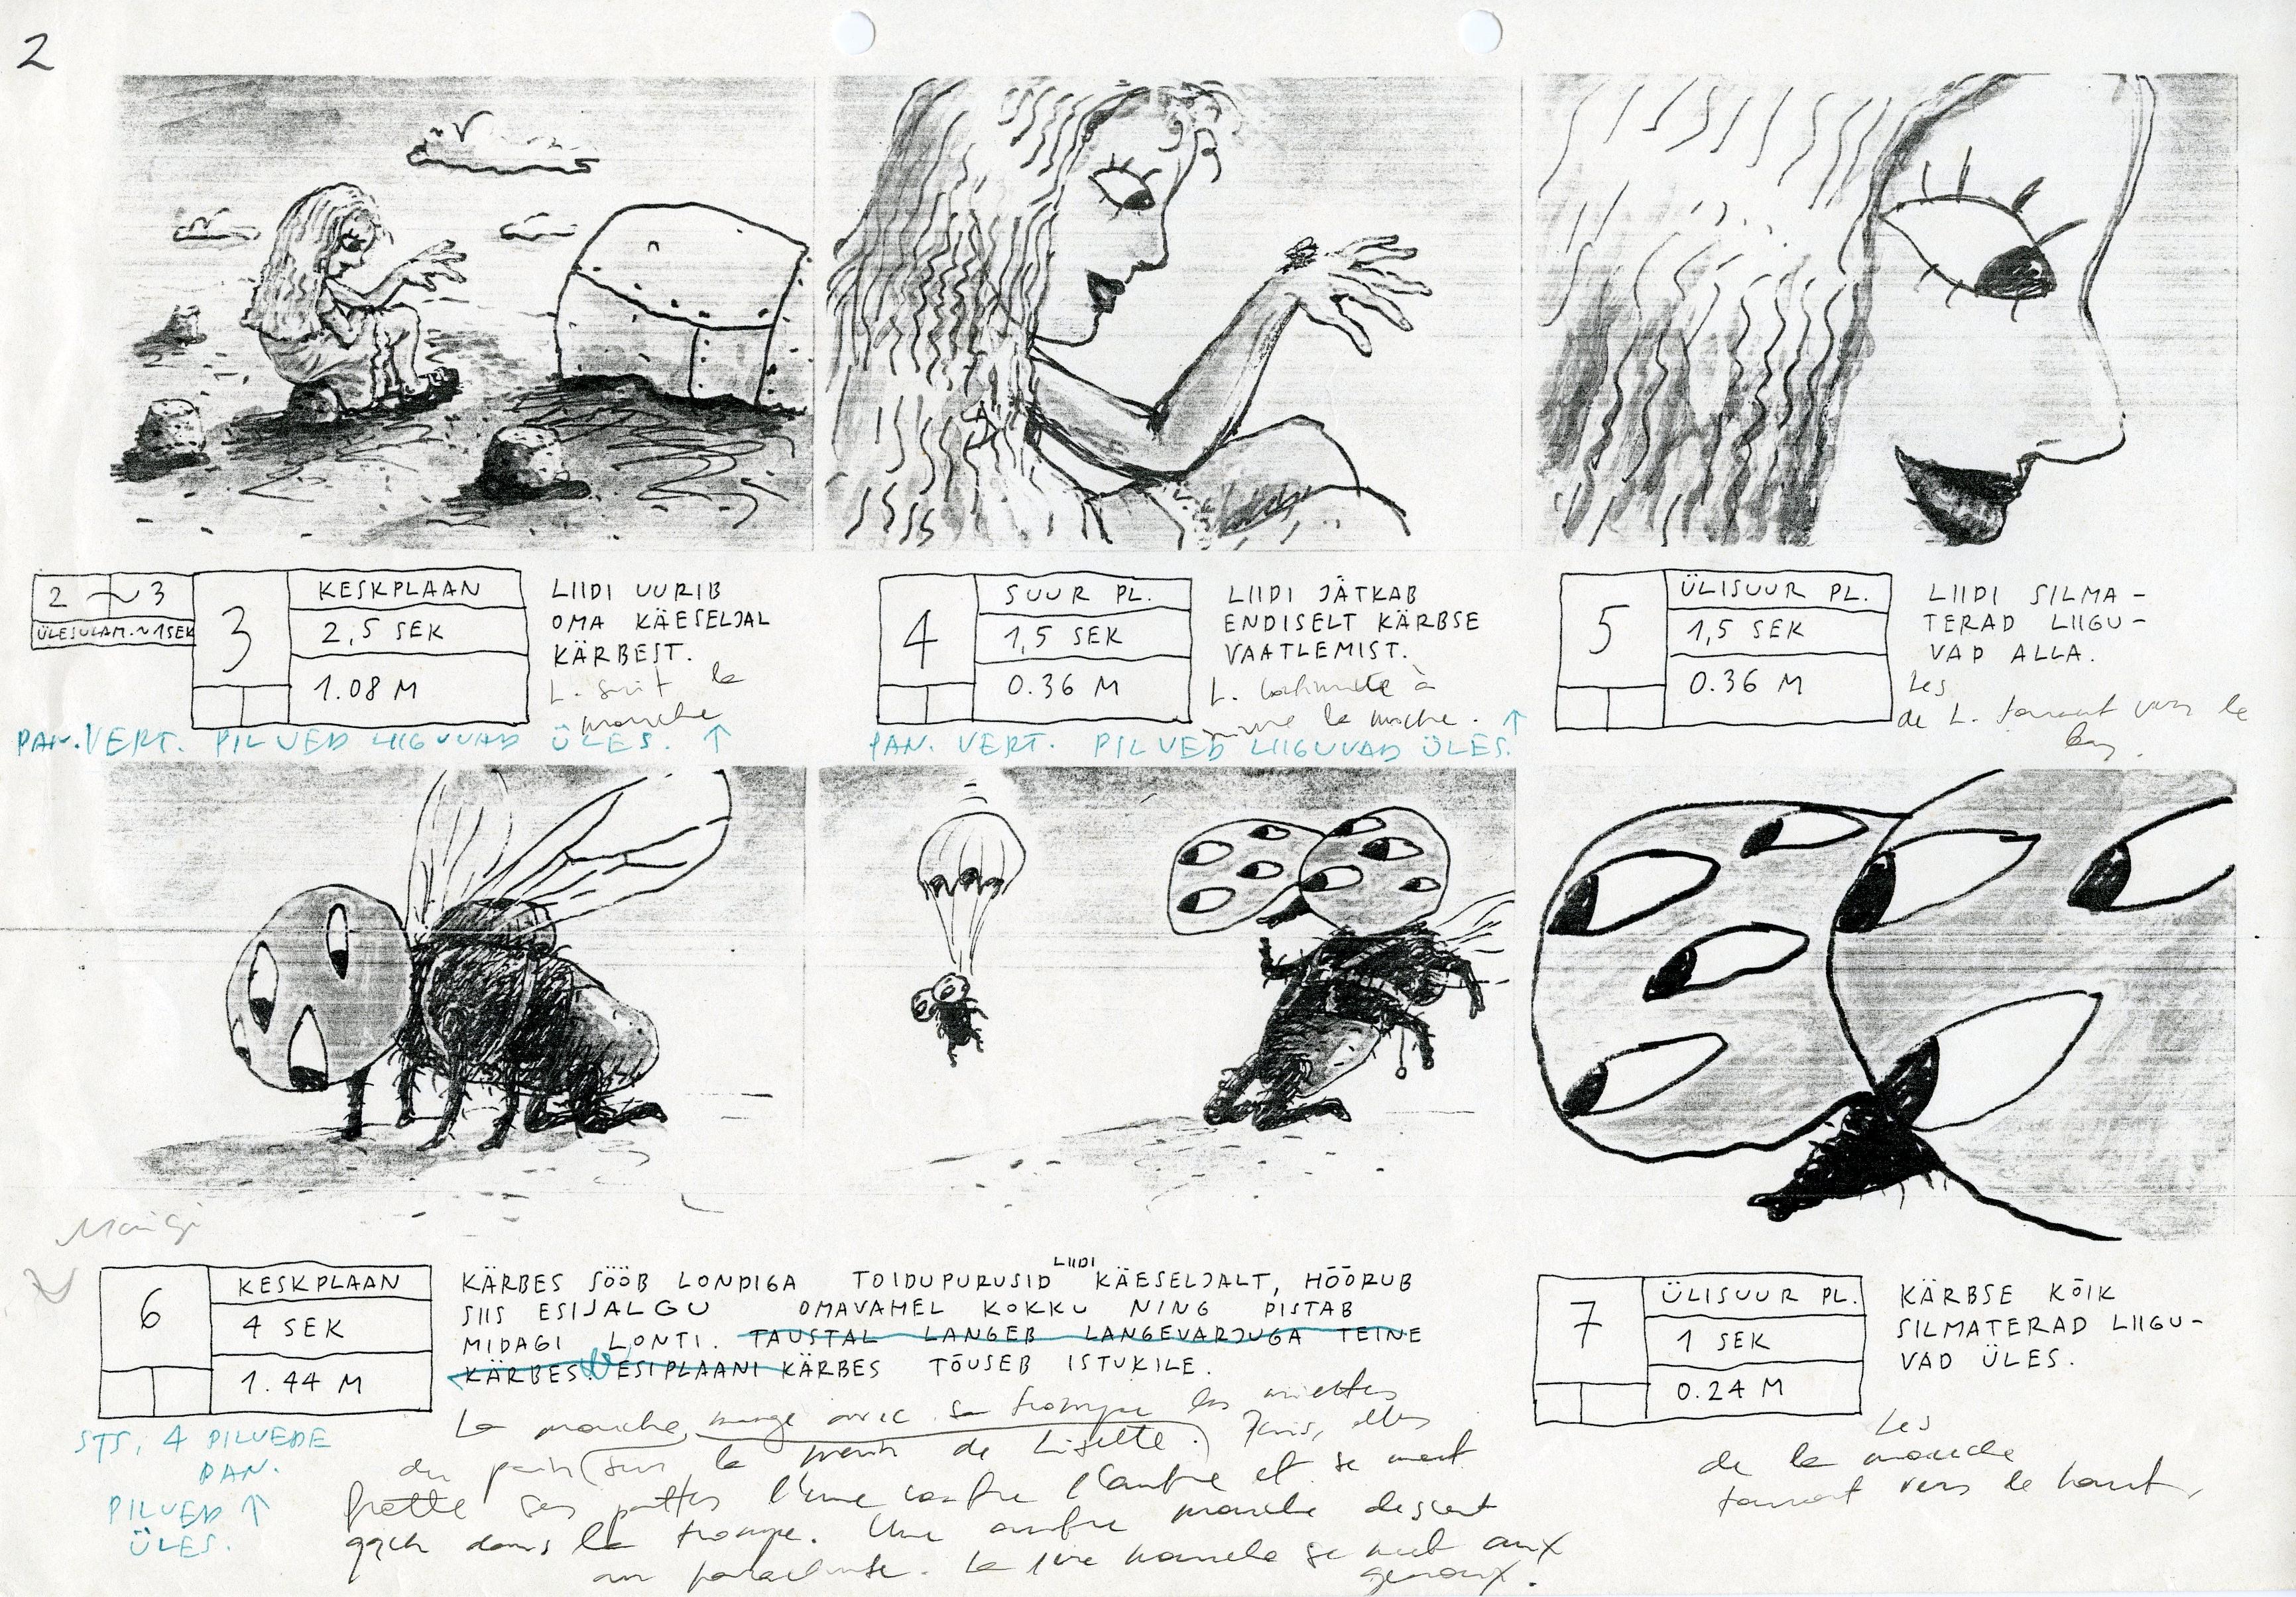 2
2 ~ 3
ÜLESULAM. ~ 1SEK
3
KESKPLAAN
2,5 SEK
1.08 M
LIIDI UURIB
OMA KÄESELJAL
KÄRBEST.
L. suit la
mouche
PAN. VERT. PILVED LIIGUVAD ÜLES. ↑
4
SUUR PL.
1,5 SEK
0.36 M
LIIDI JÄTKAB
ENDISELT KÄRBSE
VAATLEMIST.
L. continue à
suivre la mouche.
PAN. VERT. PILVED LIIGUVAD ÜLES. ↑
5
ÜLISUUR PL.
1,5 SEK
0.36 M
LIIDI SILMA-
TERAD LIIGU-
VAD ALLA.
Les
de L. tournent vers le
bas.
6
KESKPLAAN
4 SEK
1.44 M
KÄRBES SÖÖB LONDIGA TOIDUPURUSID LIIDI KÄESELJALT, HÕÕRUB
SIIS ESIJALGU OMAVAHEL KOKKU NING PISTAB
MIDAGI LONTI. TAUSTAL LANGEB LANGEVARJUGA TEINE
KÄRBES. ESIPLAANI KÄRBES TÕUSEB ISTUKILE.
La mouche mange avec sa trompe les miettes
du pain (sur la main de Lisette.) Puis, elle
frotte ses pattes l'une contre l'autre et se met
qqch dans la trompe. Une autre mouche descend
en parachute. La 1ère mouche se met aux
genoux.
STS, 4 PILVEDE
PAN.
PILVED ↑
ÜLES.
7
ÜLISUUR PL.
1 SEK
0.24 M
KÄRBSE KÕIK
SILMATERAD LIIGU-
VAD ÜLES.
Les
de la mouche
tournent vers le haut.